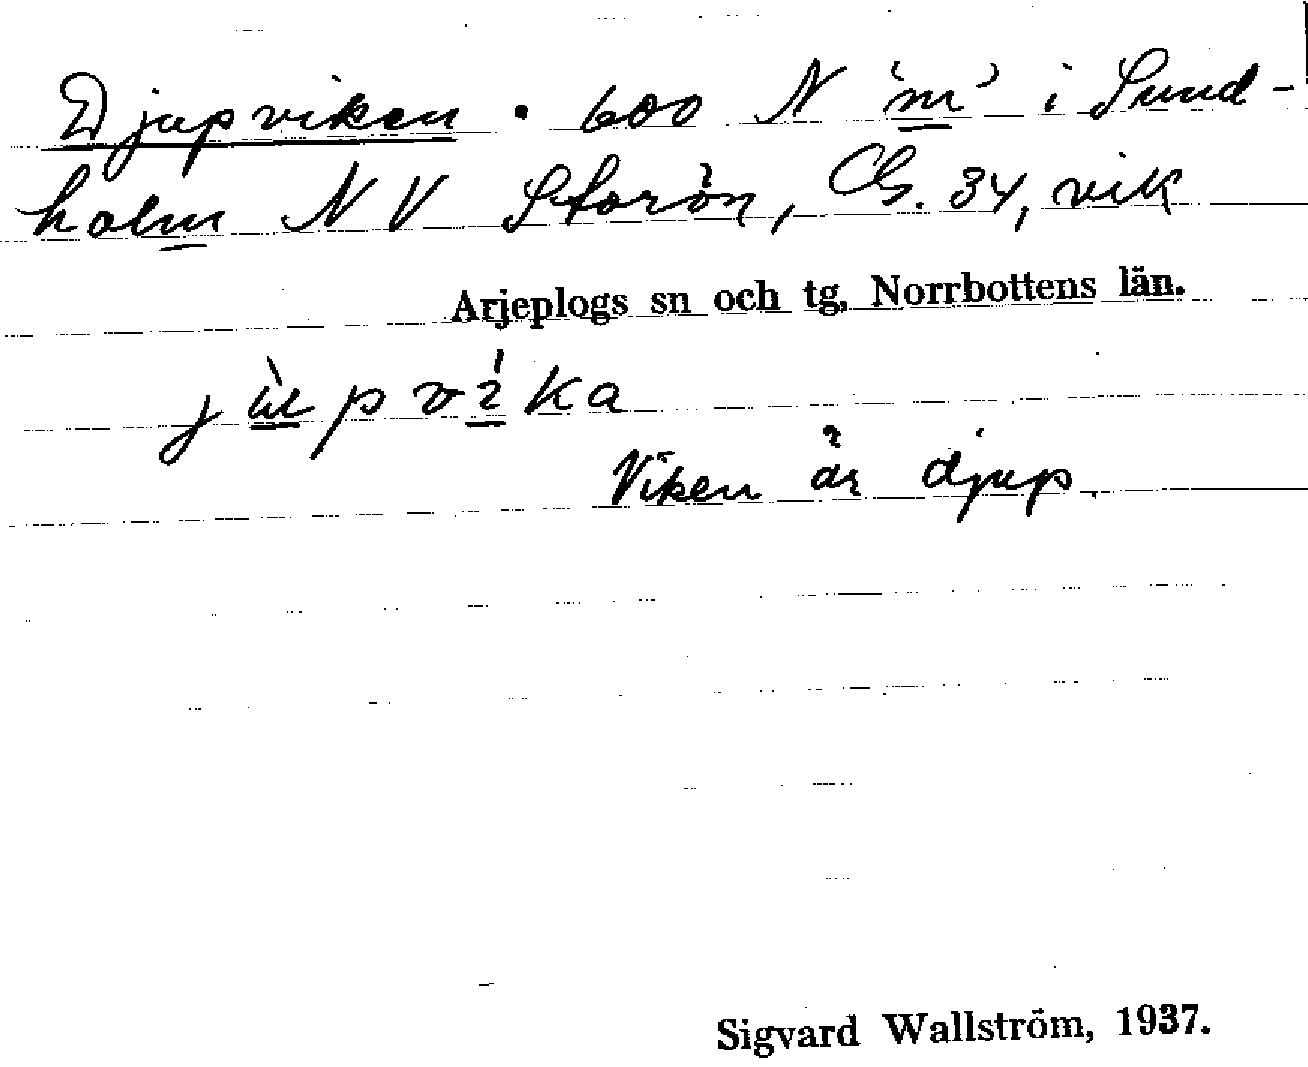 Djupviken. 600 N 'm' i Sund-
holm NV Storön, CG. 34, vik
Arjeplogs sn och tg, Norrbottens län.
jùpvíka
Viken är djup
Sigvard Wallström, 1937.